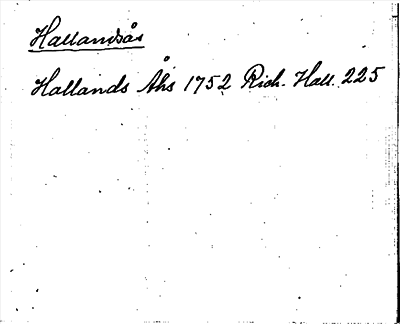 Hallandsås
Hallands Åhs 1752 Rich. Hall. 225